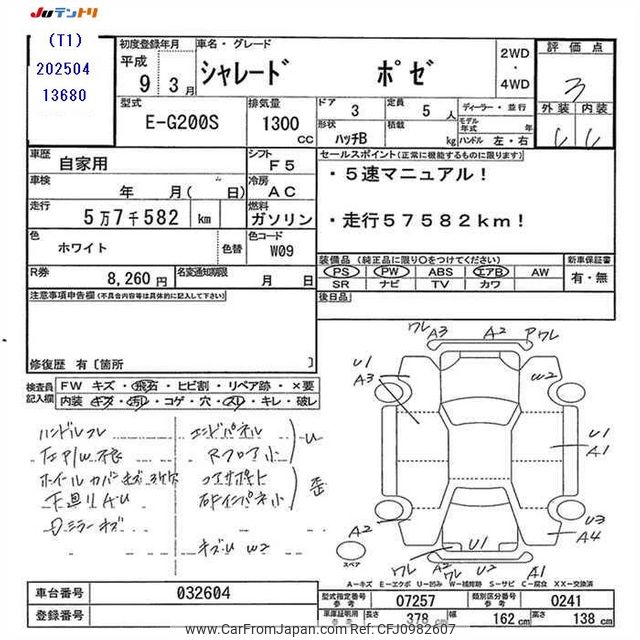 JUテントリ
(T1)
202504
13680
初度登録年月
平成
9年3月
車名・グレード
シャレード ポゼ
2WD
・
4WD
評価点
3
外装 内装
型式
E-G200S
排気量
1300 CC
ドア 3
定員 5人
ディーラー・並行
モデル年式 年
形状 ハッチB
積載 kg
ハンドル 左・右
車歴 自家用
シフト F5
車検 年 月( 日)
冷房 AC
走行 5万7千582 km
燃料 ガソリン
色 ホワイト
色替
色コード W09
R券 8,260円
名変通知期限 月 日
セールスポイント(正常に機能するものに限ります)
・5速マニュアル!
・走行57582km!
装備品(純正品に限り○をつけてください)
新車保証書
PS PW ABS エアB AW
有・無
SR ナビ TV カワ
後日品
注意事項申告欄(不具合内容等は具体的に記入して下さい)
修復歴 有〔箇所 〕
検査員記入欄
FW キズ・飛石・ヒビ割・リペア跡・×要
内装 キズ・汚レ・コゲ・穴・スレ・キレ・破レ
ハンドルスレ
エンドパネル
U
左P/W不良
Rフロア小
歪
Dミラーキズ
キズU W2
ワレ A3 A2 Pワレ
U1
A3
W2
U1
A1
U3
A4
A2
U1
ワレ A2 ワレ U2 A1
スペア
A-キズ E-エクボ U-凹み W-補修跡 S-サビ C-腐食 XX-交換済
車台番号 032604
登録番号
型式指定番号 参考 07257
類別区分番号 参考 0241
車庫証明用 参考
長さ 378 cm
幅 162 cm
高さ 138 cm
www.CarFromJapan.com EPJ0982607